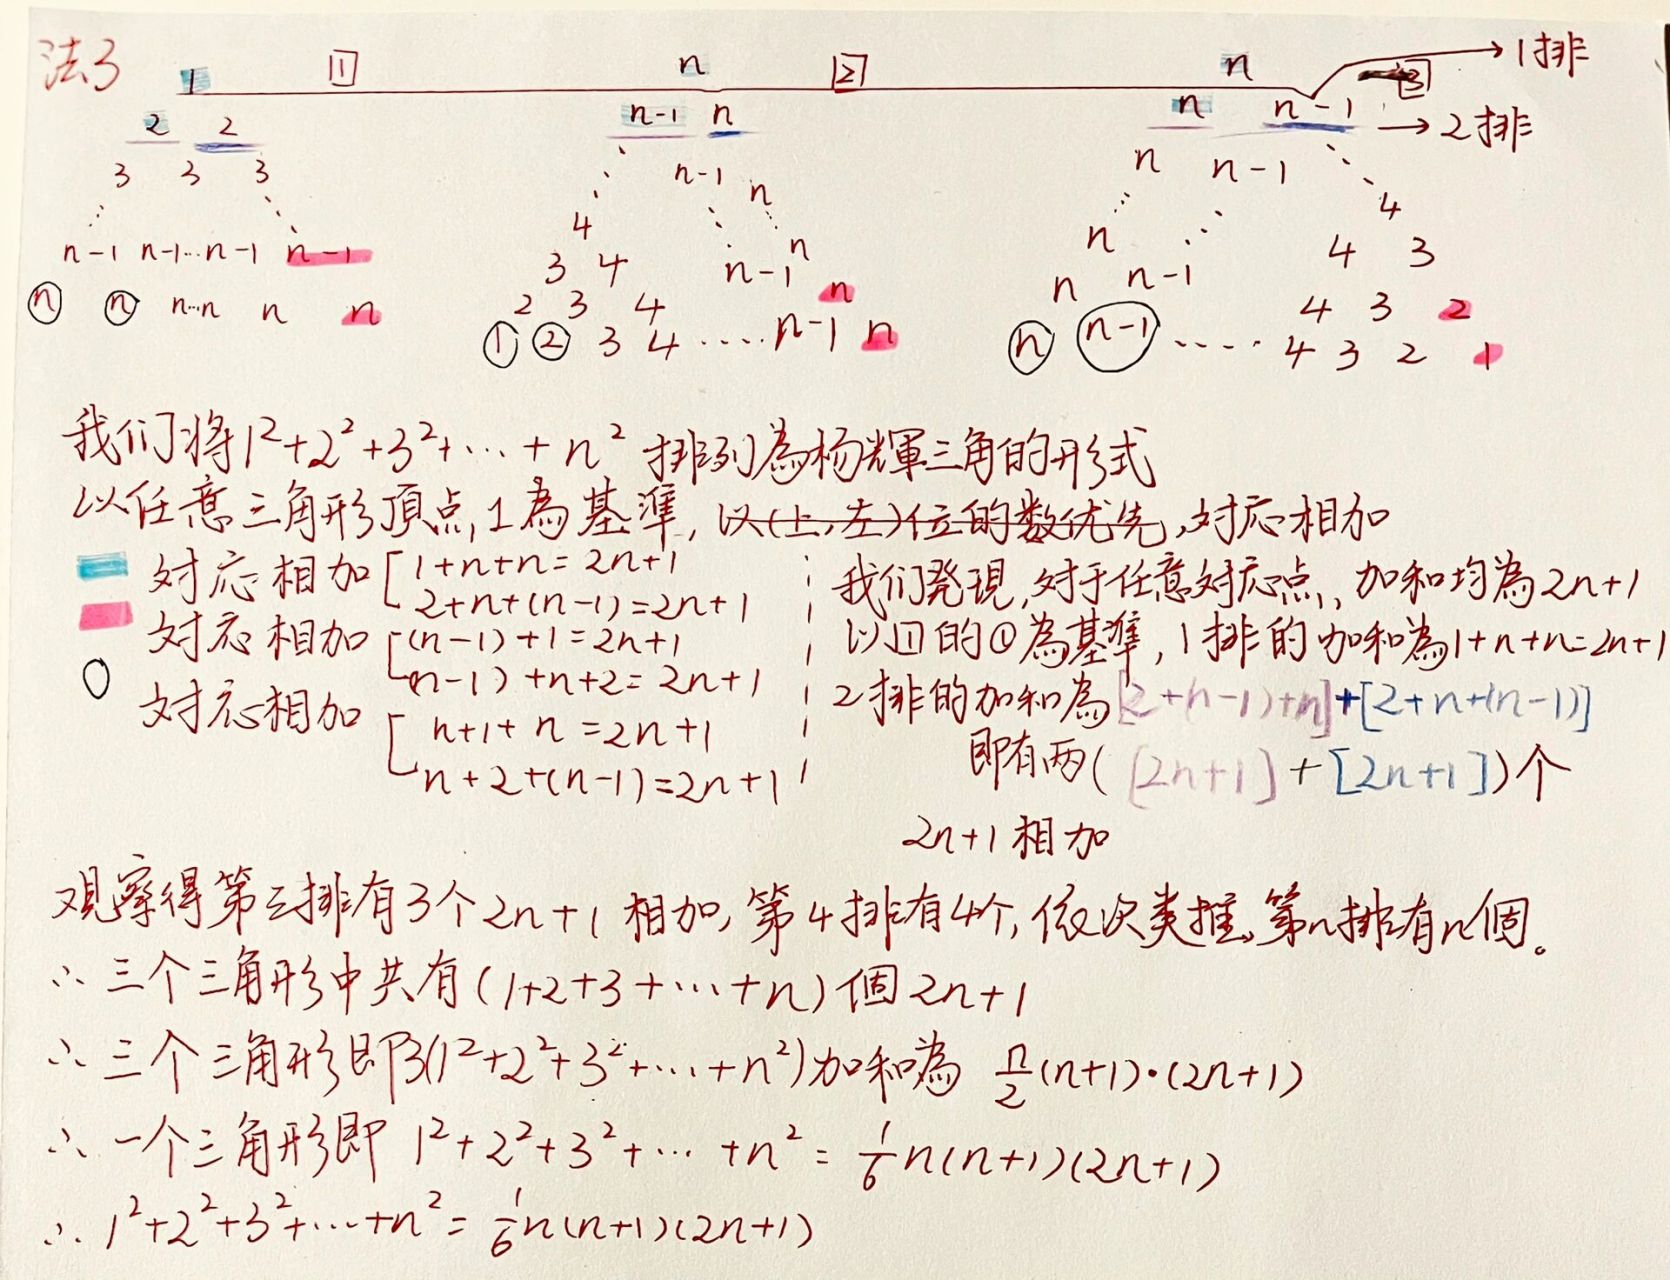 法3
1 [1] n [2] n [3] → 1排
2 2 n-1 n n n-1 → 2排
3 3 3 n-1 n n n-1
4 4
n-1 n-1…n-1 n-1 3 4 n-1 n n n-1 4 3
ⓝ ⓝ n…n n n 2 3 4 n n 4 3 2
① ② 3 4 ····· n-1 n ⓝ (n-1) ···· 4 3 2 1
我们将1²+2²+3²+…+n² 排列為杨輝三角的形式
以任意三角形頂点,1為基準,以(上,左)位的数优先,对応相加
对应相加 [1+n+n=2n+1
2+n+(n-1)=2n+1
对应相加 [(n-1)+1=2n+1
(n-1)+n+2=2n+1
对应相加 [n+1+n=2n+1
n+2+(n-1)=2n+1
我们発現,对于任意对应点,加和均為2n+1
以[1]的①為基準,1排的加和為1+n+n=2n+1
2排的加和為[2+(n-1)+n]+[2+n+(n-1)]
即有两([2n+1]+[2n+1])个
2n+1相加
观察得第三排有3个2n+1相加,第4排有4个,依次类推,第n排有n個。
∴三个三角形中共有(1+2+3+…+n)個2n+1
∴三个三角形即3(1²+2²+3²+…+n²)加和為 n/2(n+1)·(2n+1)
∴一个三角形即 1²+2²+3²+…+n²=1/6n(n+1)(2n+1)
∴1²+2²+3²+…+n²=1/6n(n+1)(2n+1)